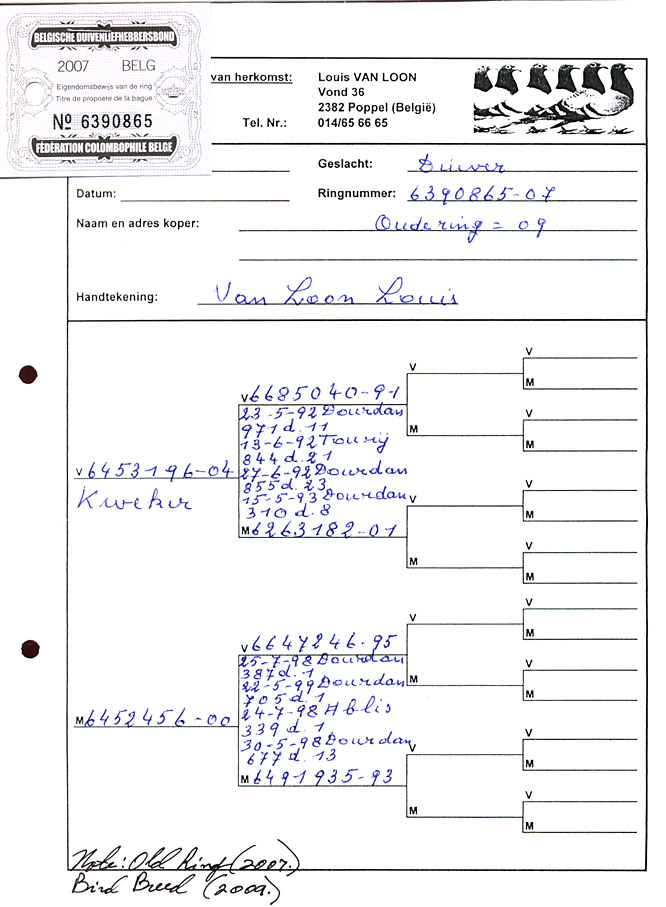 BELGISCHE DUIVENLIEFHEBBERSBOND
2007 BELG
Eigendomsbewijs van de ring
Titre de propriete de la bague
Nº 6390865
FÉDÉRATION COLOMBOPHILE BELGE
van herkomst: Louis VAN LOON
Vond 36
2382 Poppel (België)
Tel. Nr.: 014/65 66 65
Geslacht: Duiver
Datum: Ringnummer: 6390865-07
Naam en adres koper: Oudering = 09
Handtekening: Van Loon Louis
V
V
M
V 6685040-91
23-5-92 Dourdan
971 d. 11
13-6-92 Tourij
844 d. 21
27-6-92 Dourdan
855 d. 23
15-5-93 Dourdan
310 d. 8
M 6263182-01
M
V
M
V 6453196-04
Kweker
V
V
M
M
V
M
V 6647246-95
25-7-98 Dourdan
387 d. 1
22-5-99 Dourdan
705 d. 1
24-7-98 Ablis
339 d. 1
30-5-98 Dourdan
677 d. 13
M 6491935-93
V
V
M
M
V
M
M 6452456-00
V
V
M
M
V
M
Note: Old Ring (2007.)
Bird Breed (2009.)